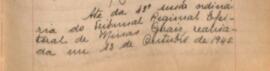 Ata da 43ª sessão ordina
ria do Tribunal Regional Elei
toral de Minas Gerais, realiza
da em 23 de Outubro de 1945